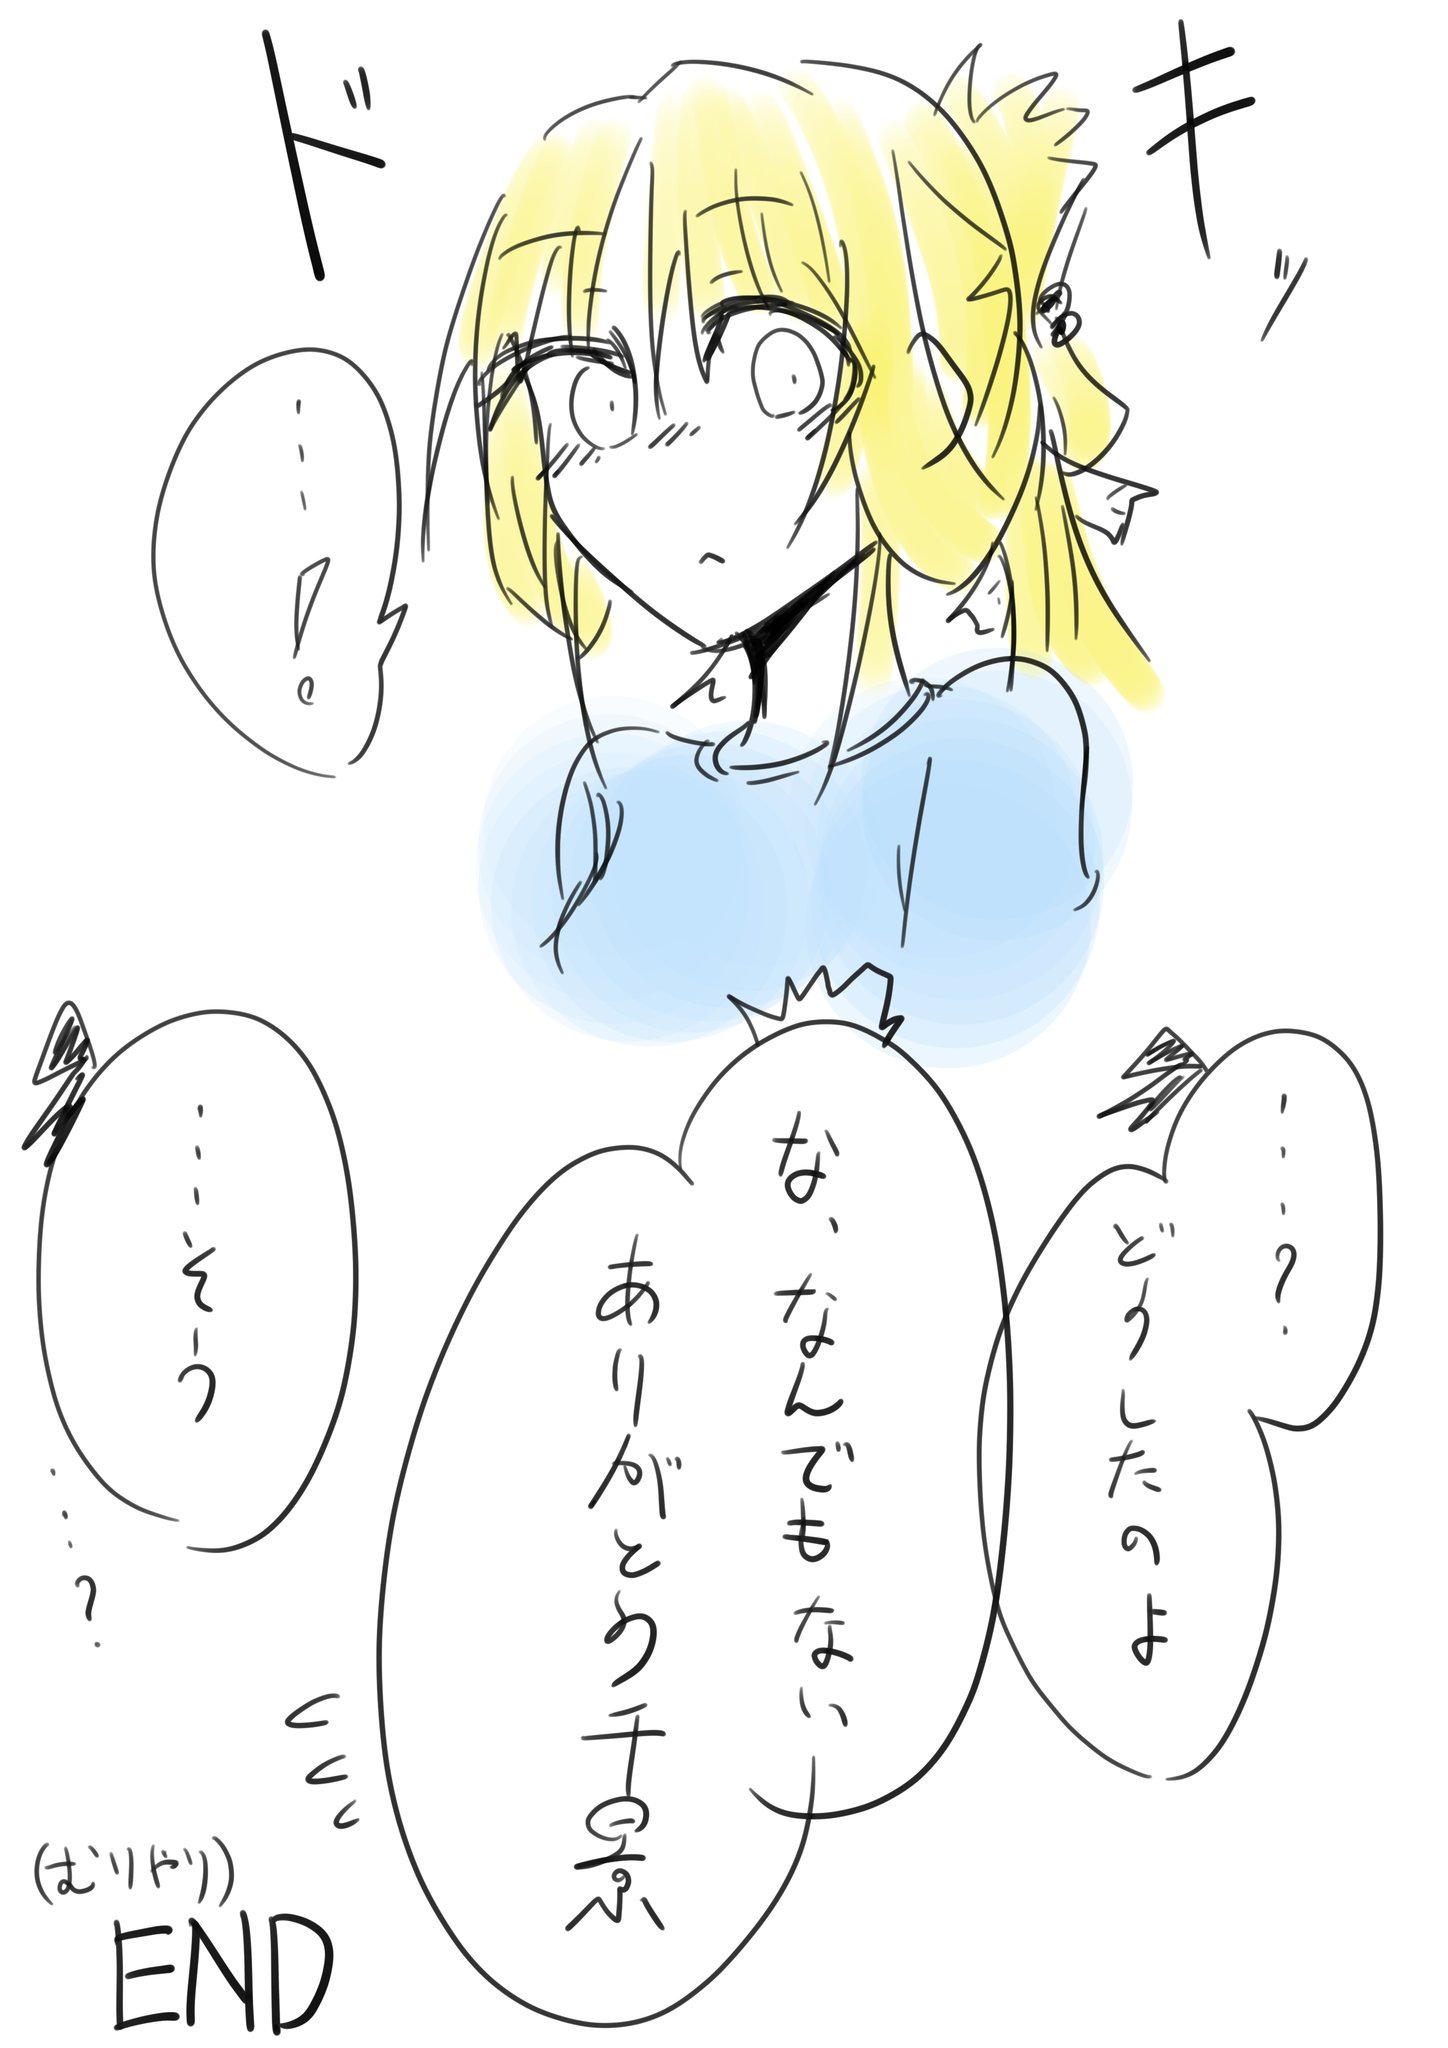 ドキッ
………!
……?
どうしたのよ
な、なんでもない
ありがとう千景
………そう
…?
(むりやり)
END